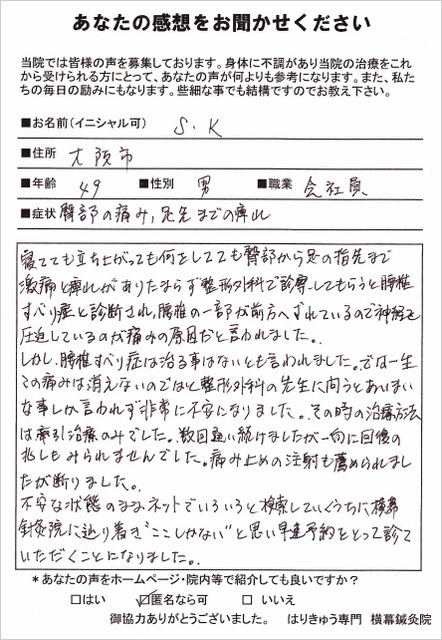 あなたの感想をお聞かせください
当院では皆様の声を募集しております。身体に不調があり当院の治療をこれ
から受けられる方にとって、あなたの声が何よりも参考になります。また、私た
ちの毎日の励みにもなります。些細な事でも結構ですのでお教え下さい。
■お名前(イニシャル可) S.K
■住所 大阪市
■年齢 49 ■性別 男 ■職業 会社員
■症状 臀部の痛み,足先までの痺れ
寝てても立ち上がっても何をしてても臀部から足の指先まで
激痛と痺れがありたまらず整形外科で診察してもらうと腰椎
すべり症と診断され,腰椎の一部が前方へずれているので神経を
圧迫しているのが痛みの原因だと言われました。
しかし,腰椎すべり症は治る事はないとも言われました。では一生
この痛みは消えないのではと整形外科の先生に問うとあいまい
な事しか言われず非常に不安になりました。その時の治療方法
は牽引治療のみでした。数回通い続けましたが一向に回復の
兆しもみられませんでした。痛み止めの注射も薦められまし
たが断りました。
不安な状態のままネットでいろいろと検索していくうちに横幕
針灸院に辿り着き"ここしかない"と思い早速予約をとって診て
いただくことになりました。
*あなたの声をホームページ・院内等で紹介しても良いですか?
□はい ☑匿名なら可 □いいえ
御協力ありがとうございました。 はりきゅう専門 横幕鍼灸院